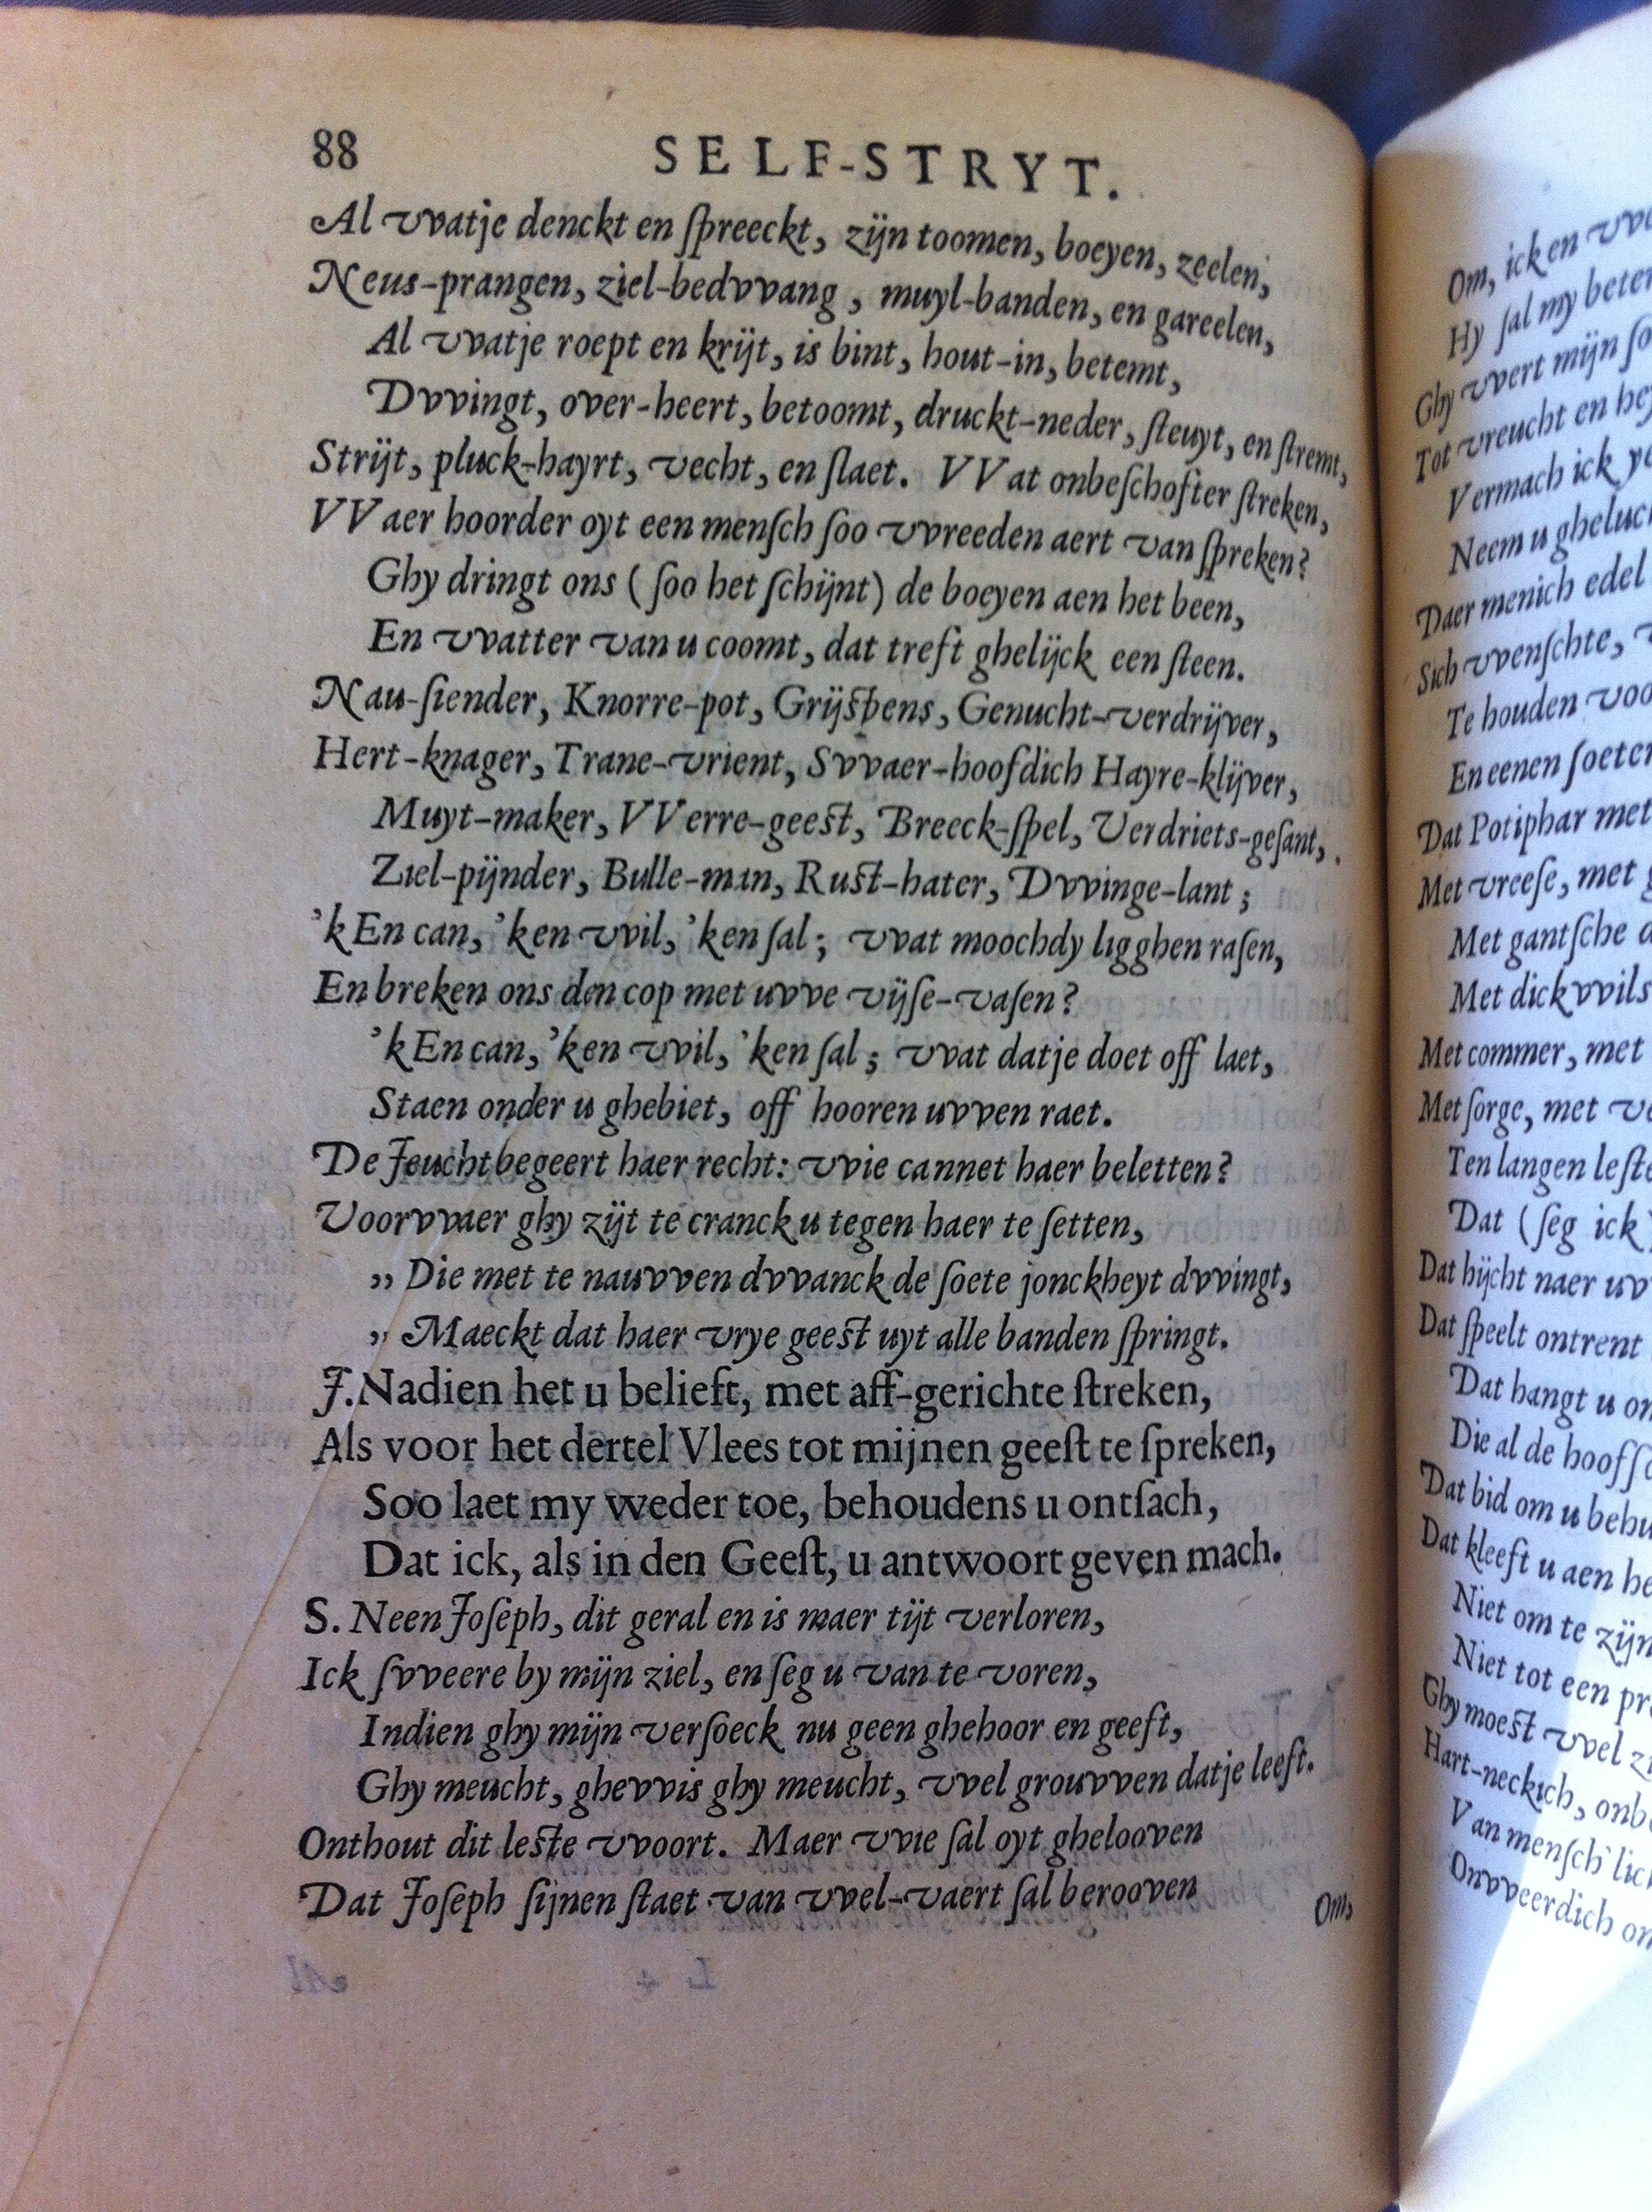 88 SELF-STRYT.
Al vvatje denckt en ſpreeckt, zijn toomen, boeyen, zeelen,
Neus-prangen, ziel-bedvvang, muyl-banden, en gareelen,
Al vvatje roept en krijt, is bint, hout-in, betemt,
Dvvingt, over-heert, betoomt, druckt-neder, ſteuyt, en ſtremt,
Strijt, pluck-hayrt, vecht, en ſlaet. VVat onbeſchofter ſtreken,
VVaer hoorder oyt een menſch ſoo vvreeden aert van ſpreken?
Ghy dringt ons (ſoo het ſchijnt) de boeyen aen het been,
En vvatter van u coomt, dat treft ghelijck een ſteen.
Nau-ſiender, Knorre-pot, Grijſpens, Genucht-verdrijver,
Hert-knager, Trane-vrient, Svvaer-hoofdich Hayre-klijver,
Muyt-maker, VVerre-geeſt, Breeck-ſpel, Verdriets-geſant,
Ziel-pijnder, Bulle-man, Ruſt-hater, Dvvinge-lant;
'kEn can, 'ken vvil, 'ken ſal; vvat moochdy ligghen raſen,
En breken ons den cop met uvve vijſe-vaſen?
'kEn can, 'ken vvil, 'ken ſal; vvat datje doet off laet,
Staen onder u ghebiet, off hooren uvven raet.
De Jeucht begeert haer recht: vvie cannet haer beletten?
Voorvvaer ghy zijt te cranck u tegen haer te ſetten,
„ Die met te nauvven dvvanck de ſoete jonckheyt dvvingt,
„ Maeckt dat haer vrye geeſt uyt alle banden ſpringt.
J. Nadien het u belieft, met aff-gerichte ſtreken,
Als voor het dertel Vlees tot mijnen geeſt te ſpreken,
Soo laet my weder toe, behoudens u ontſach,
Dat ick, als in den Geeſt, u antwoort geven mach.
S. Neen Joſeph, dit geral en is maer tijt verloren,
Ick ſvveere by mijn ziel, en ſeg u van te voren,
Indien ghy mijn verſoeck nu geen ghehoor en geeft,
Ghy meucht, ghevvis ghy meucht, vvel grouvven datje leeft.
Onthout dit leſte vvoort. Maer vvie ſal oyt ghelooven
Dat Joſeph ſijnen ſtaet van vvel-vaert ſal berooven
Om,
Om, ick en
Hy ſal my beter
Ghy vvert mijn
Tot vreucht en
Vermach ick
Neem u
Daer menich edel
Sich vvenſchte,
Te houden
En eenen ſoeten
Dat Potiphar met
Met vreeſe, met
Met gantſche
Met dickvvils
Met commer, met
Met ſorge, met
Ten langen
Dat (ſeg ick)
Dat hijcht naer
Dat ſpeelt ontrent
Dat hangt u
Die al de
Dat bid om u
Dat kleeft u aen
Niet om te zijn
Niet tot een
Ghy moeſt vvel
Hart-neckich,
Van
Onvveerdich